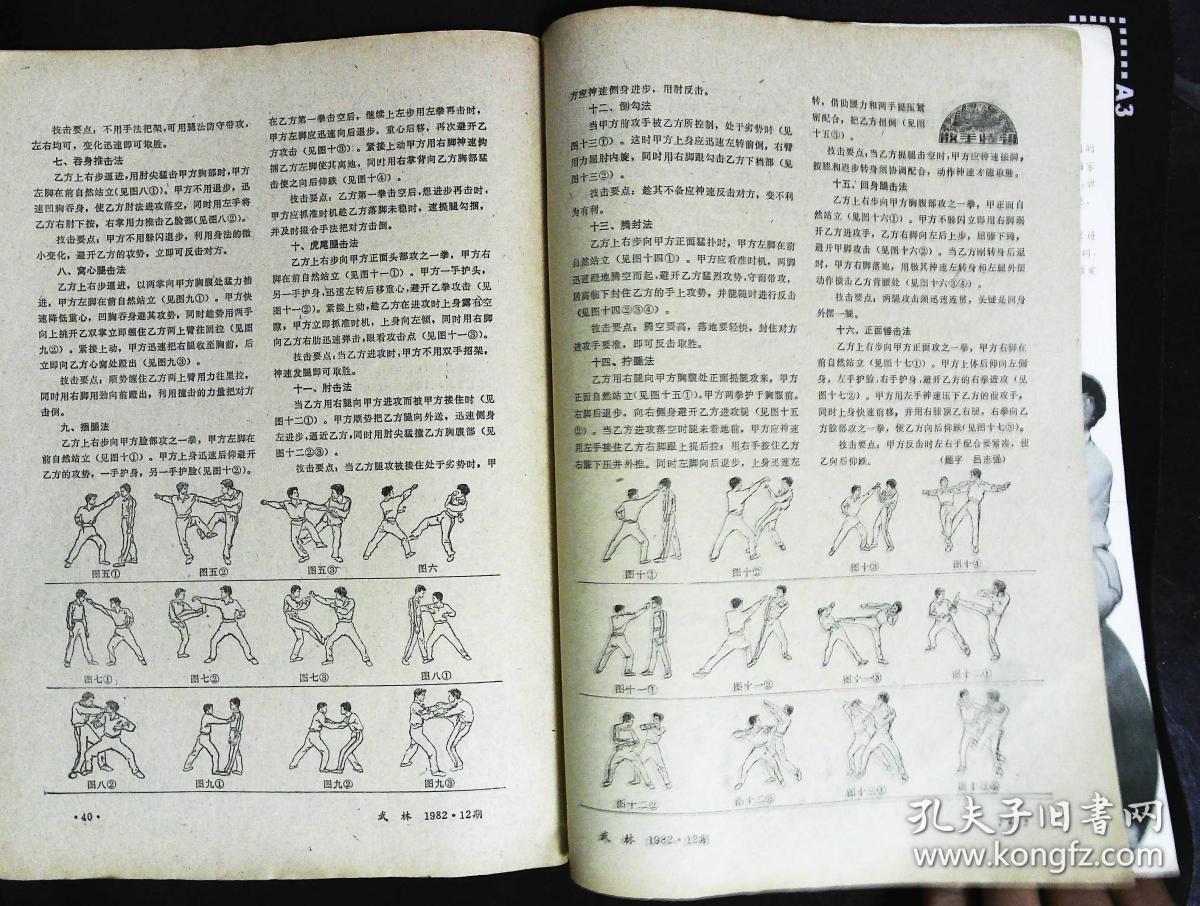 技击要点：不用手法把架，可用腿法防守带攻，
左右均可，变化迅速即可取胜。
七、吞身推击法
乙方上右步逼进，用肘尖猛击甲方胸部时，甲方
左脚在前自然站立（见图八①）。甲方不用退步，迅
速凹胸吞身，使乙方肘法进攻落空，同时用左手将
乙方右肘下按，右掌用力推击乙脸部（见图八②）。
技击要点：甲方不用躲闪退步，利用身法的微
小变化，避开乙方的攻势，立即可反击对方。
八、窝心腿击法
乙方上右步逼进，以两掌向甲方胸腹处猛力插
进，甲方左脚在前自然站立（见图九①）。甲方快
速降低重心，凹胸吞身避其攻势，同时趁势用两手
向上挑开乙双掌立即缠住乙方两上臂往回拉（见图
九②）。紧接上动，甲方迅速把右腿收至胸前，后
立即向乙方心窝处蹬出（见图九③）。
技击要点：顺势缠住乙方两上臂用力往里拉，
同时用右脚用劲向前蹬出，利用撞击的力量把对方
击倒。
九、掴腿法
乙方上右步向甲方脸部攻之一拳，甲方左脚在
前自然站立（见图十①）。甲方上身迅速后仰避开
乙方的攻势，一手护身，另一手护脸（见图十②）。
在乙方第一拳击空后，继续上左步用左拳再击时，
甲方左脚应迅速向后退步，重心后移，再次避开乙
方攻击（见图十③）。紧接上动甲方用右脚神速钩
掴乙方左脚使其离地，同时用右掌背向乙方胸部猛
击使之向后仰跌（见图十④）。
技击要点：乙方第一拳击空后，想进步再击时，
甲方应抓准时机趁乙方落脚未稳时，速提腿勾掴，
并及时掇合手法把对方击倒。
十、虎尾腿击法
乙方上右步向甲方正面头部攻之一拳，甲方右
脚在前自然站立（见图十一①）。甲方一手护头，
另一手护身，迅速左转后移重心，避开拳攻击（见
图十一②）。紧接上动，趁乙方在进攻时上身露有空
隙，甲方立即抓准时机，上身向左倾，同时用右脚
向乙方右肋迅速弹击，眼看攻击点（见图十一③）。
技击要点：当乙方进攻时，甲方不用双手招架，
神速发腿即可取胜。
十一、肘击法
当甲方用右腿向甲方进攻而被甲方接住时（见
图十二①）。甲方顺势把乙方腿向外送，迅速侧身
左进步，逼近乙方，同时用肘尖猛撞乙方胸腹部（见
图十二②③）。
技击要点：当乙方腿攻被接住处于劣势时，甲
图五①
图五②
图五③
图六
图七①
图七②
图七③
图八①
图八②
图九①
图九②
图九③
·40·
武 林 1982·12期
方应神速侧身进步，用肘反击。
十二、倒勾法
当甲方前攻手被乙方所控制，处于劣势时（见
图十三①）。这时甲方上身应迅速左转前倒，右臂
用力屈肘内旋，同时用右脚跟勾击乙方下裆部（见
图十三②）。
技击要点：趁其不备应神速反击对方，变不利
为有利。
十三、腾封法
乙方上右步向甲方正面猛扑时，甲方左脚在前
自然站立（见图十四①）。甲方应看准时机，两脚
迅速蹬地腾空而起，避开乙方猛烈攻势，守而带攻，
居高临下封住乙方的手上攻势，并能随时进行反击
（见图十四②③④）。
技击要点：腾空要高，落地要轻快，封住对方
进攻手要准，即可反击取胜。
十四、拧腿法
乙方用右腿向甲方胸腹处正面提腿攻来，甲方
正面自然站立（见图十五①），甲方两拳护于胸腹前。
右脚后退步，向右侧身避开乙方进攻腿（见图十五
②）。当乙方进攻落空时腿未着地前，甲方应神速
用左手接住乙方右脚跟上提后拉；用右手按住乙方
右膝下压并外推。同时左脚向后退步，上身迅速左
转，借助腰力和两手提压紧
密配合，把乙方扭倒（见图
十五③）。
散手特辑
技击要点：当乙方提腿击空时，甲方应神速接脚，
按膝和退步转身须协调配合，动作神速才能取胜。
十五、回身腿击法
乙方上右步向甲方胸腹部攻之一拳，甲正面自
然站立（见图十六①）。甲方不躲闪立即用右脚踢
开乙方进攻手，乙方右脚向左后上步，屈膝下蹲，
避开甲脚攻击（见图十六②）。当乙方刚转身后退
时，甲方右脚落地，用极其神速左转身和左腿外摆
动作横击乙方背腰处（见图十六③④）。
技击要点：两腿攻击须迅速连贯，关键是回身
外摆一腿。
十六、正面锤击法
乙方上右步向甲方正面攻之一拳，甲方右脚在
前自然站立（见图十七①）。甲方上体后仰向左侧
身，左手护脸，右手护身，避开乙方的右拳进攻（见
图十七②）。甲方用左手神速压下乙方的前攻手，
同时上身快速前移，并用右膝顶乙右腿，右拳向乙
方脸部攻之一拳，使乙方向后仰跌（见图十七③）。
技击要点：甲方反击时左右手配合要紧凑，使
乙向后仰跌。
（题字 吕志强）
图十①
图十②
图十③
图十④
图十一①
图十一②
图十一③
图十二①
图十二②
图十二③
图十三①
武 林 1982·12期
A3
孔夫子旧书网
www.kongfz.com